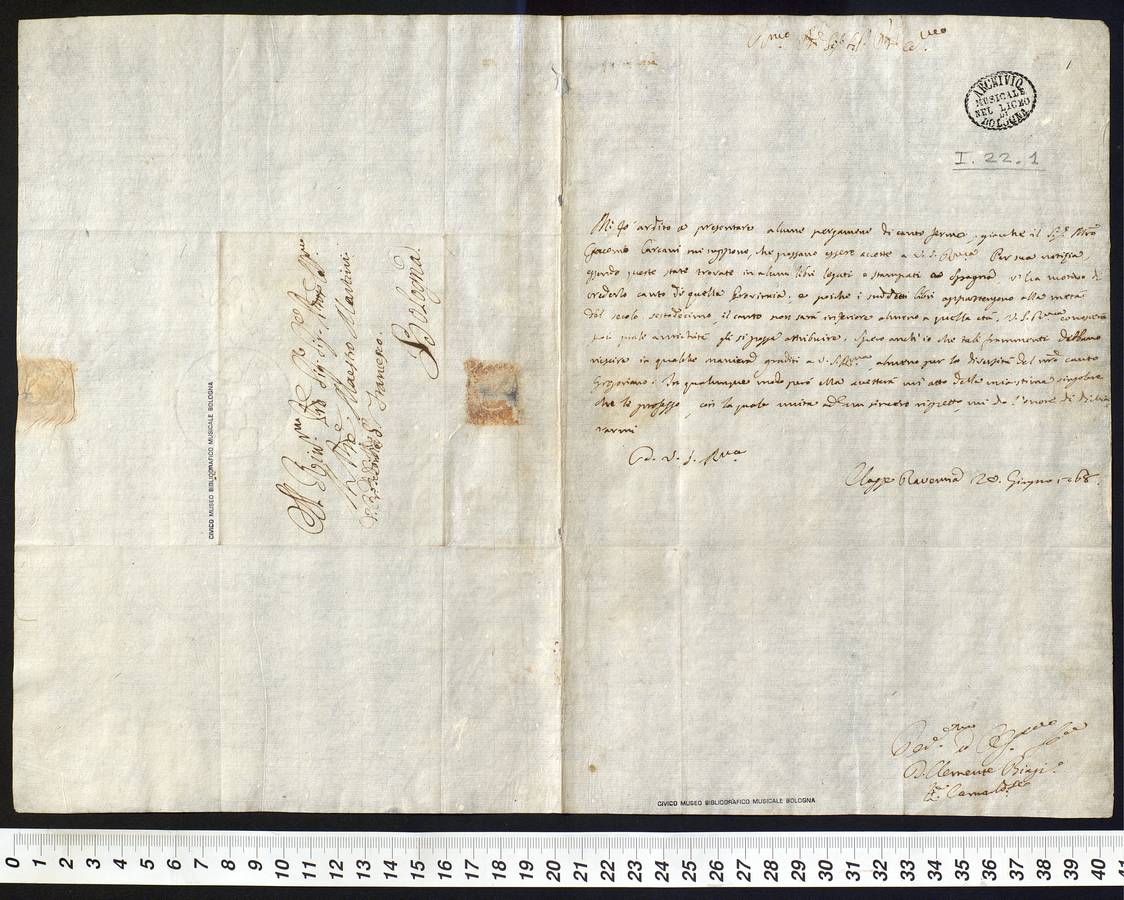 ARCHIVIO
MUSICALE
NEL LICEO
DI
BOLOGNA
I. 22. 1
Mi fò ardito a presentare alcune pergamene di canto fermo, giacchè il Sig.r
Giacomo Carcani mi suppone, che possano essere accette a V. S. Per sua notizia,
essendo queste state trovate in alcuni libri legati e stampati in Spagna, v'ha motivo di
crederlo canto di quella Provincia, e poichè i suddetti libri appartengono alla metà
del secolo sestodecimo, il canto non sarà inferiore almeno a quella età. V. S.
quale antichità gli si possa attribuire. Spero anch'io che tali frammenti debbano
riuscire in qualche maniera graditi a V. S. almeno per la diversità del canto
Gregoriano. In qualunque modo però Ella accetterà un atto della mia stima singolare
che le professo, con la quale unita ad un sincero rispetto mi do l'onore di dichia-
rarmi
Di V. S.
Classe Ravenna 28. Giugno 1768.
D. Clemente Biagi
Maestro Martini
S. Francesco.
Bologna
CIVICO MUSEO BIBLIOGRAFICO MUSICALE BOLOGNA
CIVICO MUSEO BIBLIOGRAFICO MUSICALE BOLOGNA
0 1 2 3 4 5 6 7 8 9 10 11 12 13 14 15 16 17 18 19 20 21 22 23 24 25 26 27 28 29 30 31 32 33 34 35 36 37 38 39 40 41